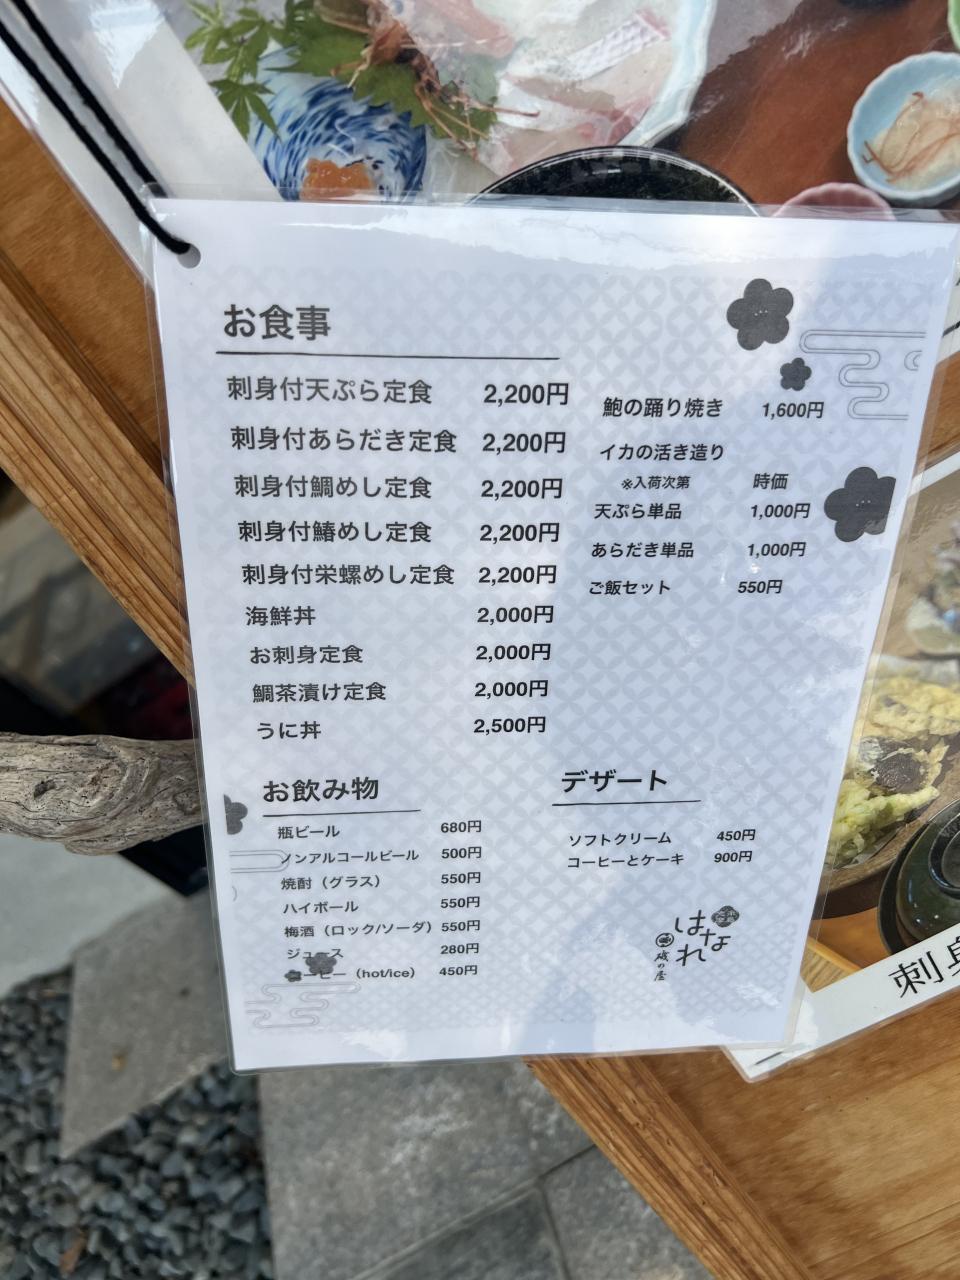 お食事
刺身付天ぷら定食 2,200円
刺身付あらだき定食 2,200円
刺身付鯛めし定食 2,200円
刺身付鰆めし定食 2,200円
刺身付栄螺めし定食 2,200円
海鮮丼 2,000円
お刺身定食 2,000円
鯛茶漬け定食 2,000円
うに丼 2,500円
鮑の踊り焼き 1,600円
イカの活き造り
※入荷次第 時価
天ぷら単品 1,000円
あらだき単品 1,000円
ご飯セット 550円
お飲み物
瓶ビール 680円
ノンアルコールビール 500円
焼酎（グラス） 550円
ハイボール 550円
梅酒（ロック/ソーダ） 550円
ジュース 280円
コーヒー（hot/ice） 450円
デザート
ソフトクリーム 450円
コーヒーとケーキ 900円
はなれ
磯の屋
刺身